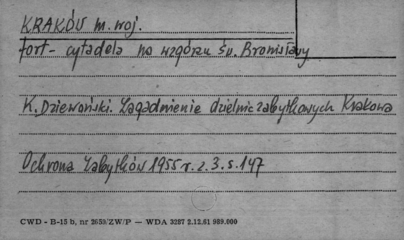 KRAKÓW m. woj.
fort - cytadela na wzgórzu św. Bronisławy
K. Dziewoński. Zagadnienie dzielnic zabytkowych Krakowa
Ochrona Zabytków 1955 r. z. 3. s. 147
CWD - B-15 b, nr 2653/ZW/P — WDA 3287 2.12.61 989.000